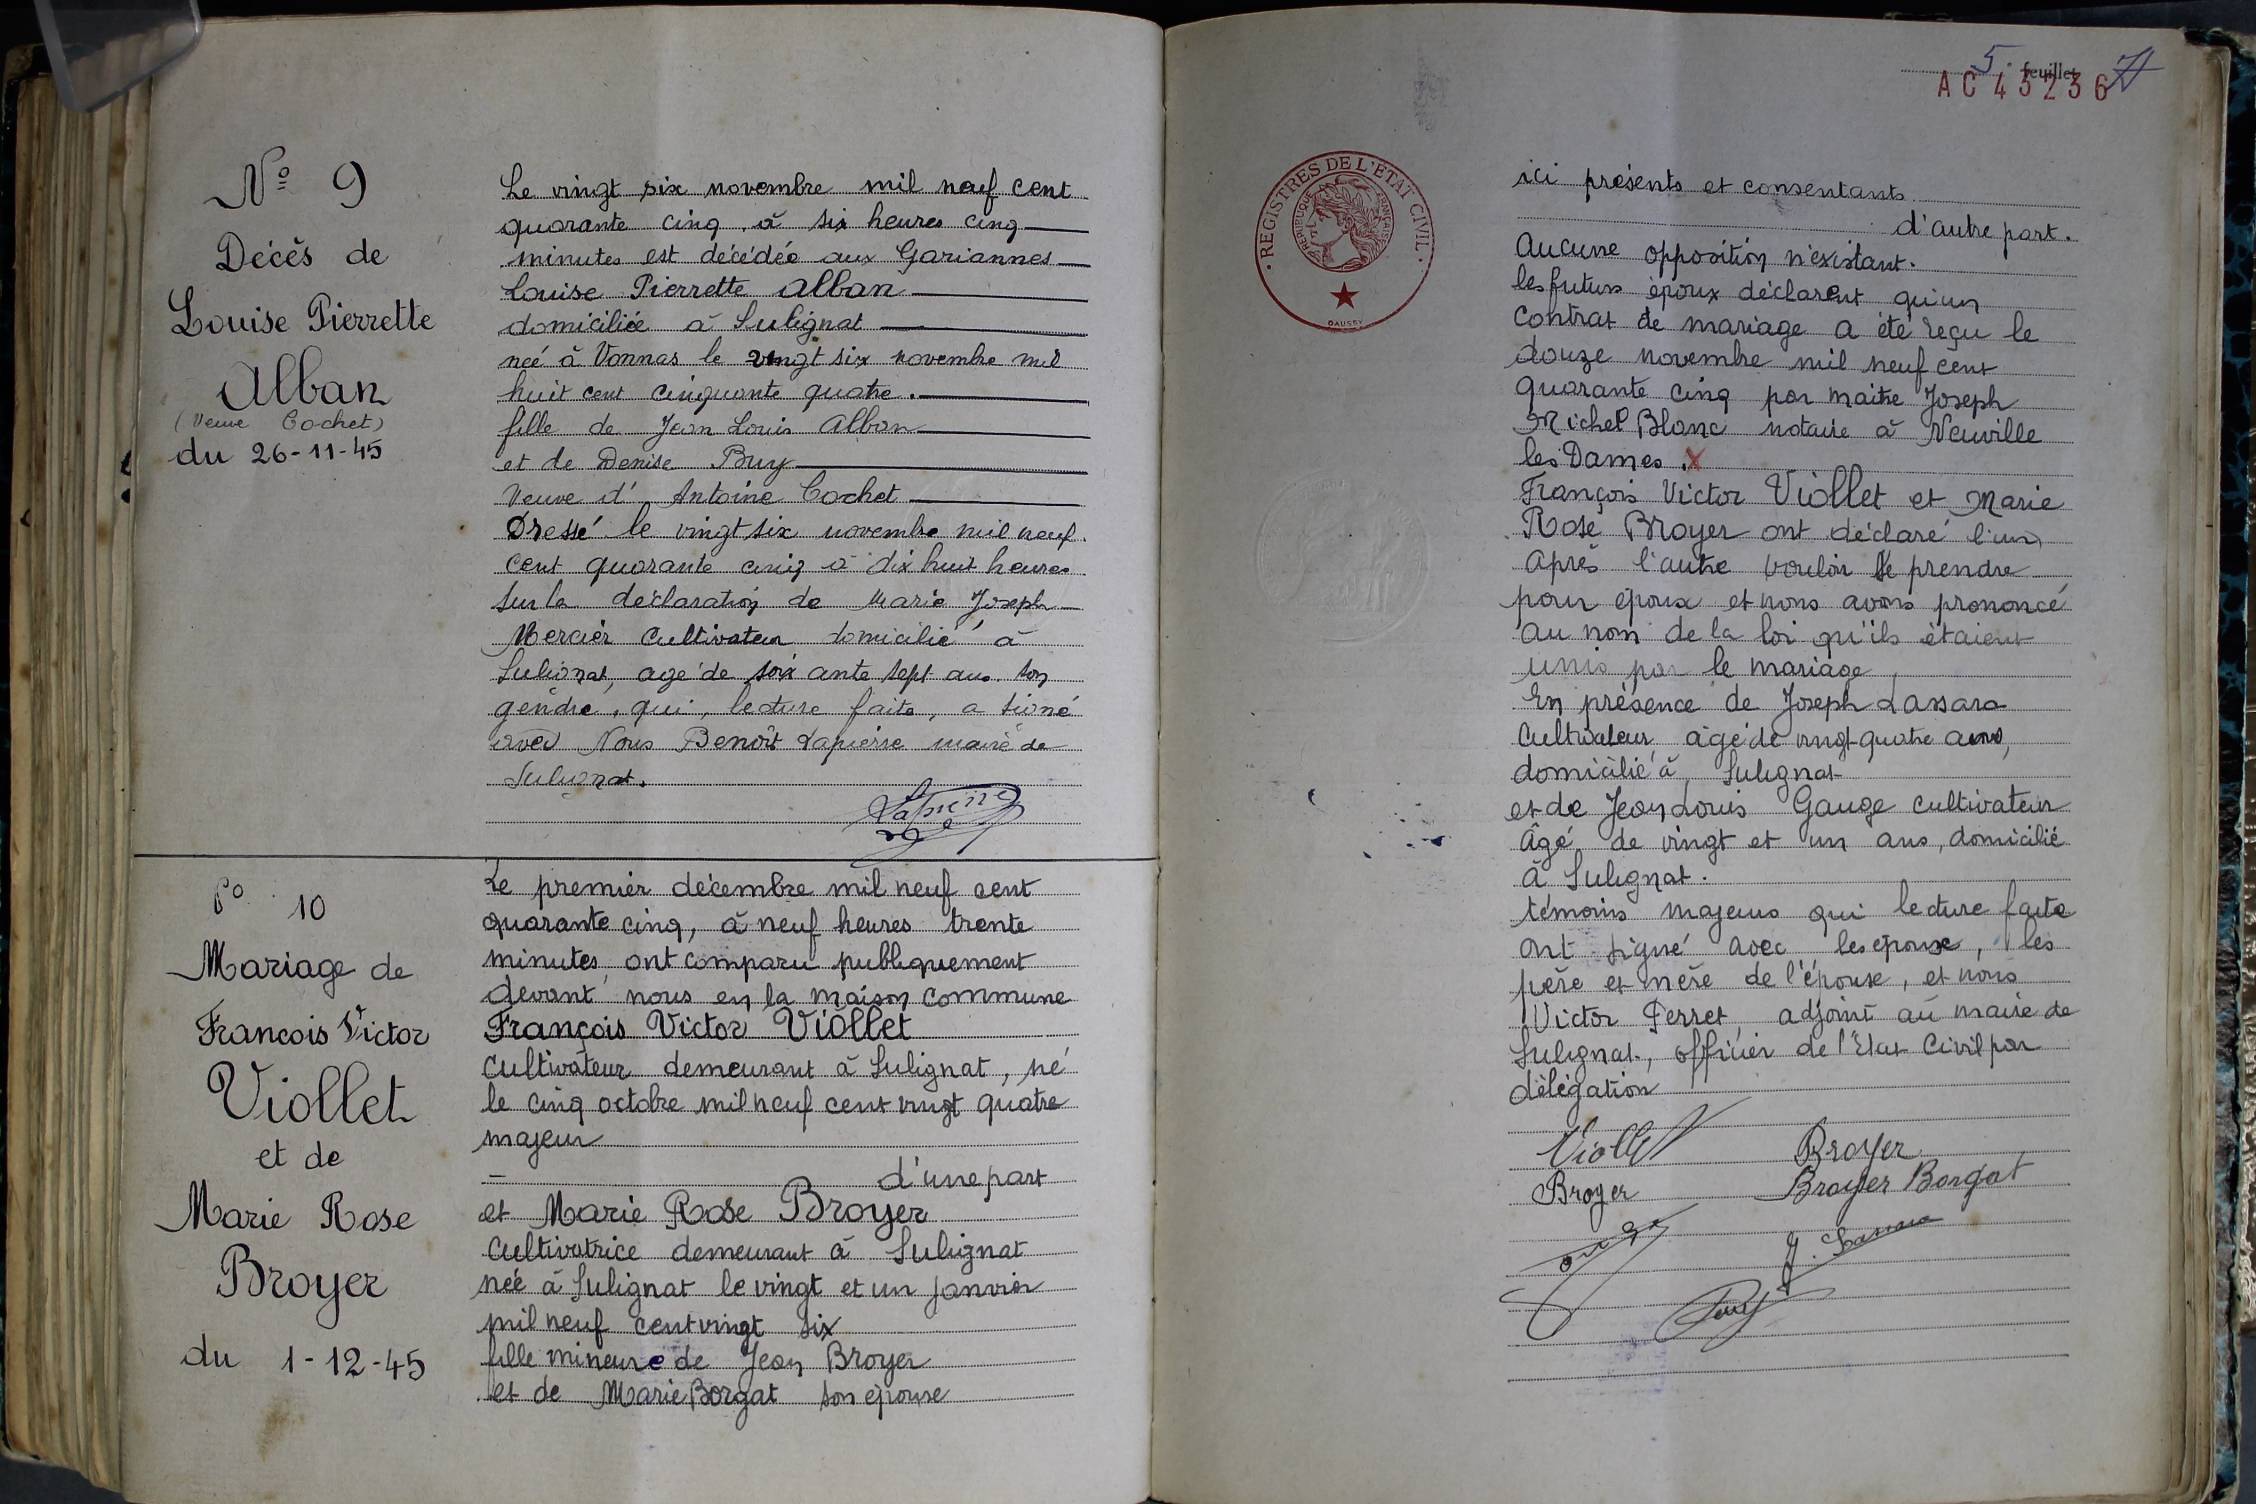 N° 9
Décès de
Louise Pierrette
Alban
(Veuve Cochet)
du 26-11-45
Le vingt six novembre mil neuf cent
quarante cinq à six heures cinq
minutes est décédée aux Gariannes
Louise Pierrette Alban
domiciliée à Sulignat
née à Vonnas le vingt six novembre mil
huit cent cinquante quatre.
fille de Jean Louis Alban
et de Denise Buy
Veuve d'Antoine Cochet
Dressé le vingt six novembre mil neuf
cent quarante cinq à dix huit heures
sur la déclaration de Marie Joseph
Mercier cultivateur domicilié à
Sulignat, agé de soixante sept ans son
gendre, qui, lecture faite, a signé
avec Nous Benoît Lapierre maire de
Sulignat.
Lapierre
N° 10
Mariage de
Francois Victor
Viollet
et de
Marie Rose
Broyer
du 1-12-45
Le premier décembre mil neuf cent
quarante cinq, à neuf heures trente
minutes ont comparu publiquement
devant nous en la maison commune
François Victor Viollet
Cultivateur demeurant à Sulignat, né
le cinq octobre mil neuf cent vingt quatre
majeur
d'une part
et Marie Rose Broyer
Cultivatrice demeurant à Sulignat
née à Sulignat le vingt et un janvier
mil neuf cent vingt six
fille mineure de Jean Broyer
et de Marie Borgat son épouse
5 feuillet
AC 43236
REGISTRES DE L'ÉTAT CIVIL
RÉPUBLIQUE FRANÇAISE
DAUSSY
ici présents et consentants
d'autre part.
Aucune opposition n'existant.
les futurs époux déclarent qu'un
contrat de mariage a été reçu le
douze novembre mil neuf cent
quarante cinq par maitre Joseph
Michel Blanc notaire à Neuville
les Dames. X
François Victor Viollet et Marie
Rose Broyer ont déclaré l'un
après l'autre vouloir se prendre
pour époux et nous avons prononcé
au nom de la loi qu'ils étaient
unis par le mariage
En présence de Joseph Lassara
Cultivateur, âgé de vingt-quatre ans,
domicilié à Sulignat
et de Jean Louis Gauge cultivateur
âgé de vingt et un ans, domicilié
à Sulignat.
témoins majeurs qui lecture faite
ont signé avec les époux, les
père et mère de l'épouse, et nous
Victor Perret, adjoint au maire de
Sulignat, officier de l'Etat Civil par
délégation
Viollet Broyer
Broyer Broyer Borgat
J. Lassara